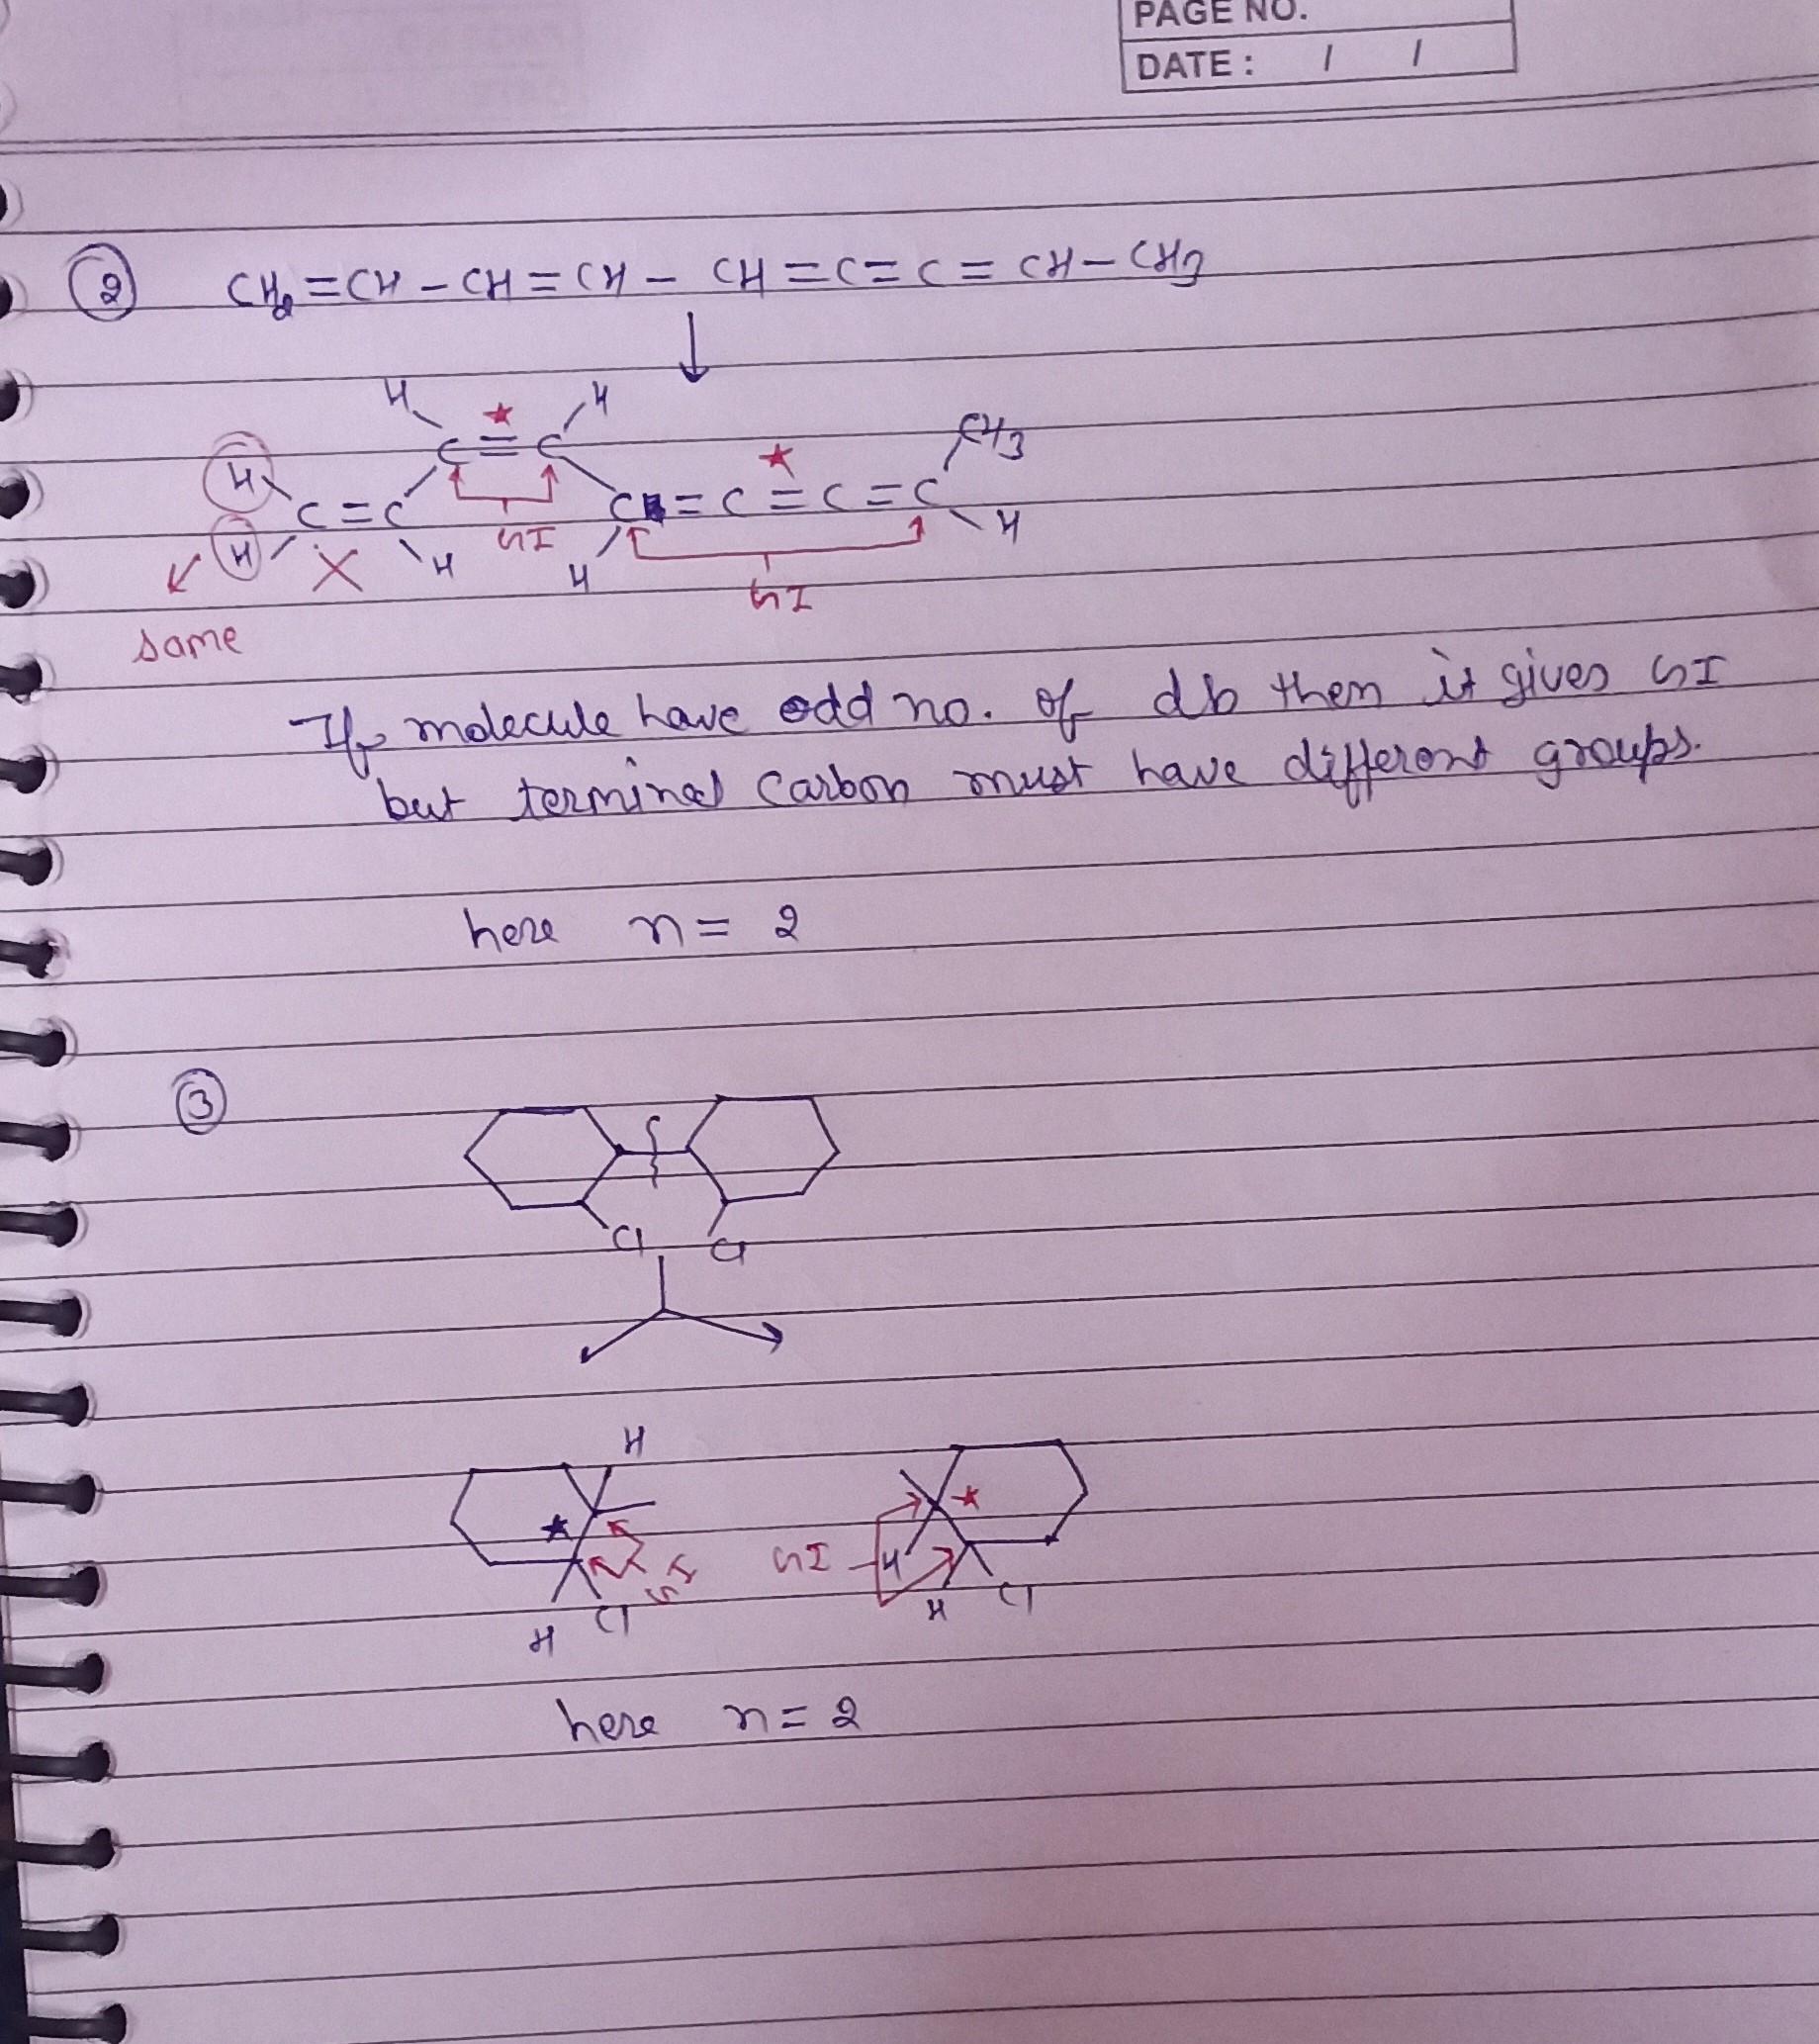 PAGE NO.
DATE : / /
2 CH2=CH-CH=CH-CH=C=C=CH-CH3
H H
★ ★ CH3
H C=C
C=C C=C=C=C
H X H GI H H
GI
same
If molecule have odd no. of db then it gives GI
but terminal carbon must have different groups.
here n= 2
3
Cl Cl
H
★ ★
GI GI H
H Cl H Cl
here n= 2